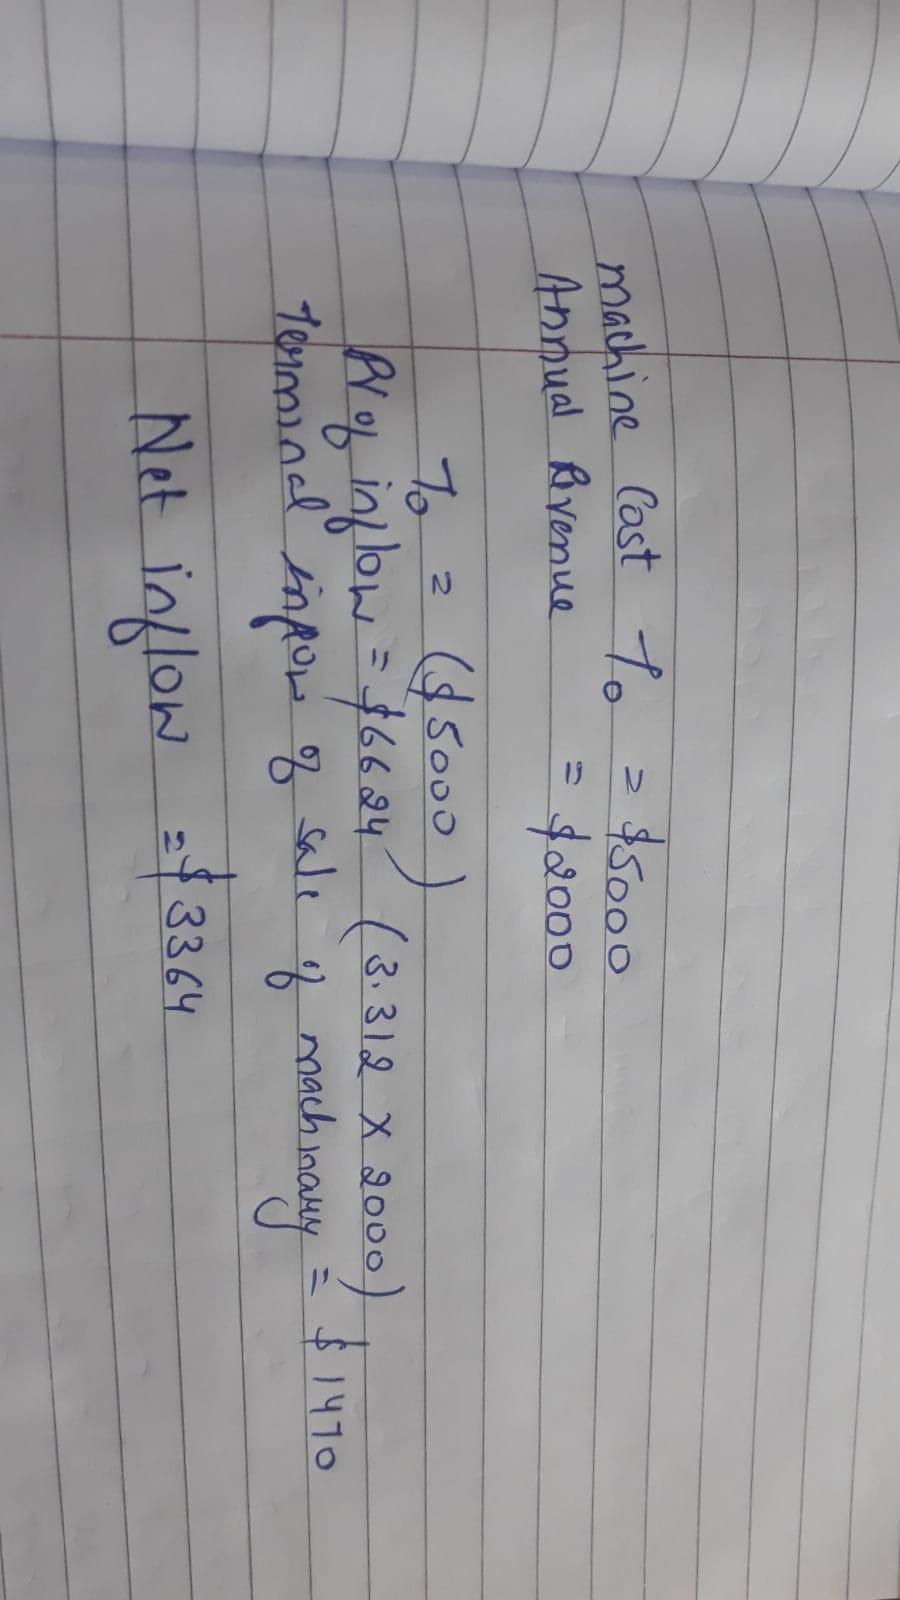 machine Cost T₀ = $5000
Annual Revenue = $2000
T₀ = ($5000)
PV of inflow = $6624 (3.312 x 2000)
Terminal inflow of sale of machinary = $1470
Net inflow = $3364